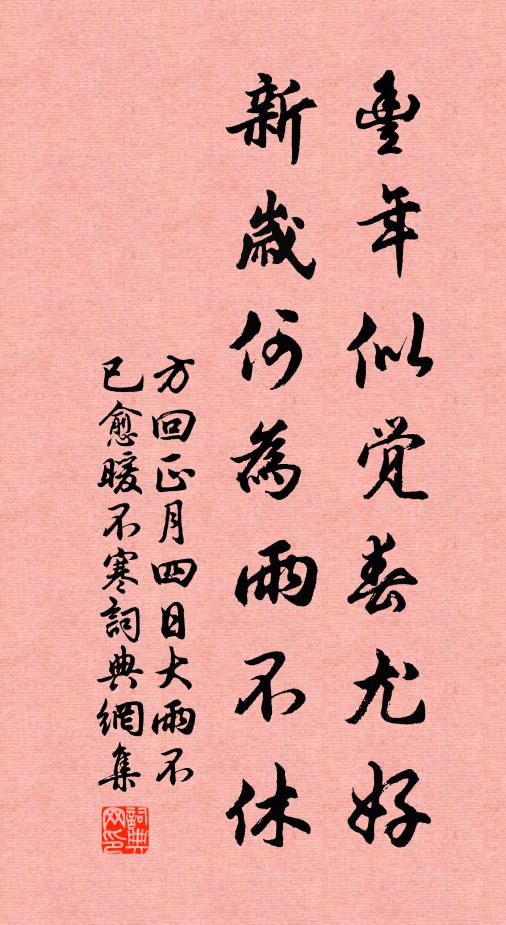 豐年似覺春尤好
新歲何為雨不休
方回正月四日大雨不
已愈暖不寒詞典網集
詞典
网印